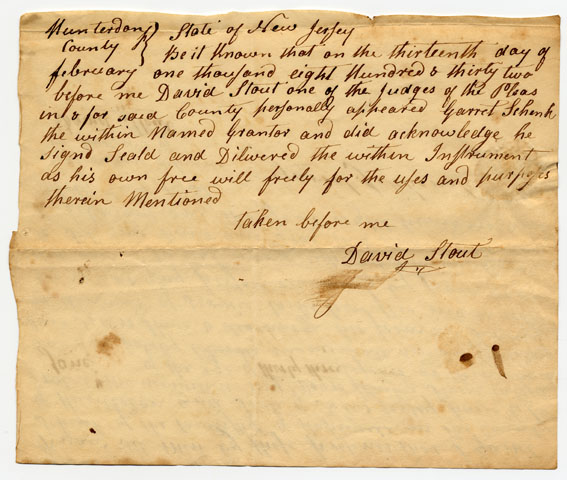 Hunterdon } State of New Jersey
County } Be it Known that on the thirteenth day of
february one thousand eight Hundred & thirty two
before me David Stout one of the Judges of the Pleas
in & for said County personally appeared Garret Schenk
the within Named Grantor and did acknowledge he
signd Seald and Dilivered the within Instrument
as his own free will freely for the uses and purposes
therein Mentioned
taken before me
David Stout